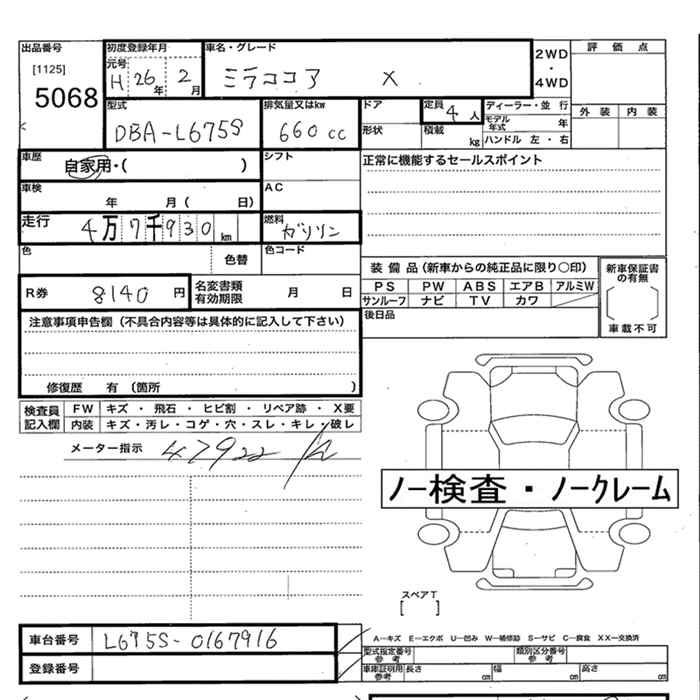 出品番号 初度登録年月 車名・グレード 2WD ・ 4WD 評価点
[1125] 元号
5068 H 26年 2月 ミラココア X
外装 内装
型式 排気量又はkw ドア 定員 4人 ディーラー・並行
DBA-L675S 660cc 形状 積載 kg モデル年式 年
ハンドル 左・右
車歴 自家用・( ) シフト 正常に機能するセールスポイント
車検 年 月( 日) AC
走行 4万7千930km 燃料 ガソリン
色 色替 色コード
装備品(新車からの純正品に限り○印) 新車保証書の有無
R券 8140円 名変書類有効期限 月 日 PS PW ABS エアB アルミW
サンルーフ ナビ TV カワ [ ]
注意事項申告欄(不具合内容等は具体的に記入して下さい) 後日品 車載不可
修復歴 有(箇所 )
検査員記入欄 FW キズ・飛石・ヒビ割・リペア跡・X要
内装 キズ・汚レ・コゲ・穴・スレ・キレ・破レ
メーター指示 47922
ノー検査・ノークレーム
スペアT
[ ]
車台番号 L675S-0167916
A―キズ E―エクボ U―凹み W―補修跡 S―サビ C―腐食 XX―交換済
型式指定番号参考 類別区分番号参考
登録番号 車庫証明用参考 長さ cm 幅 cm 高さ cm